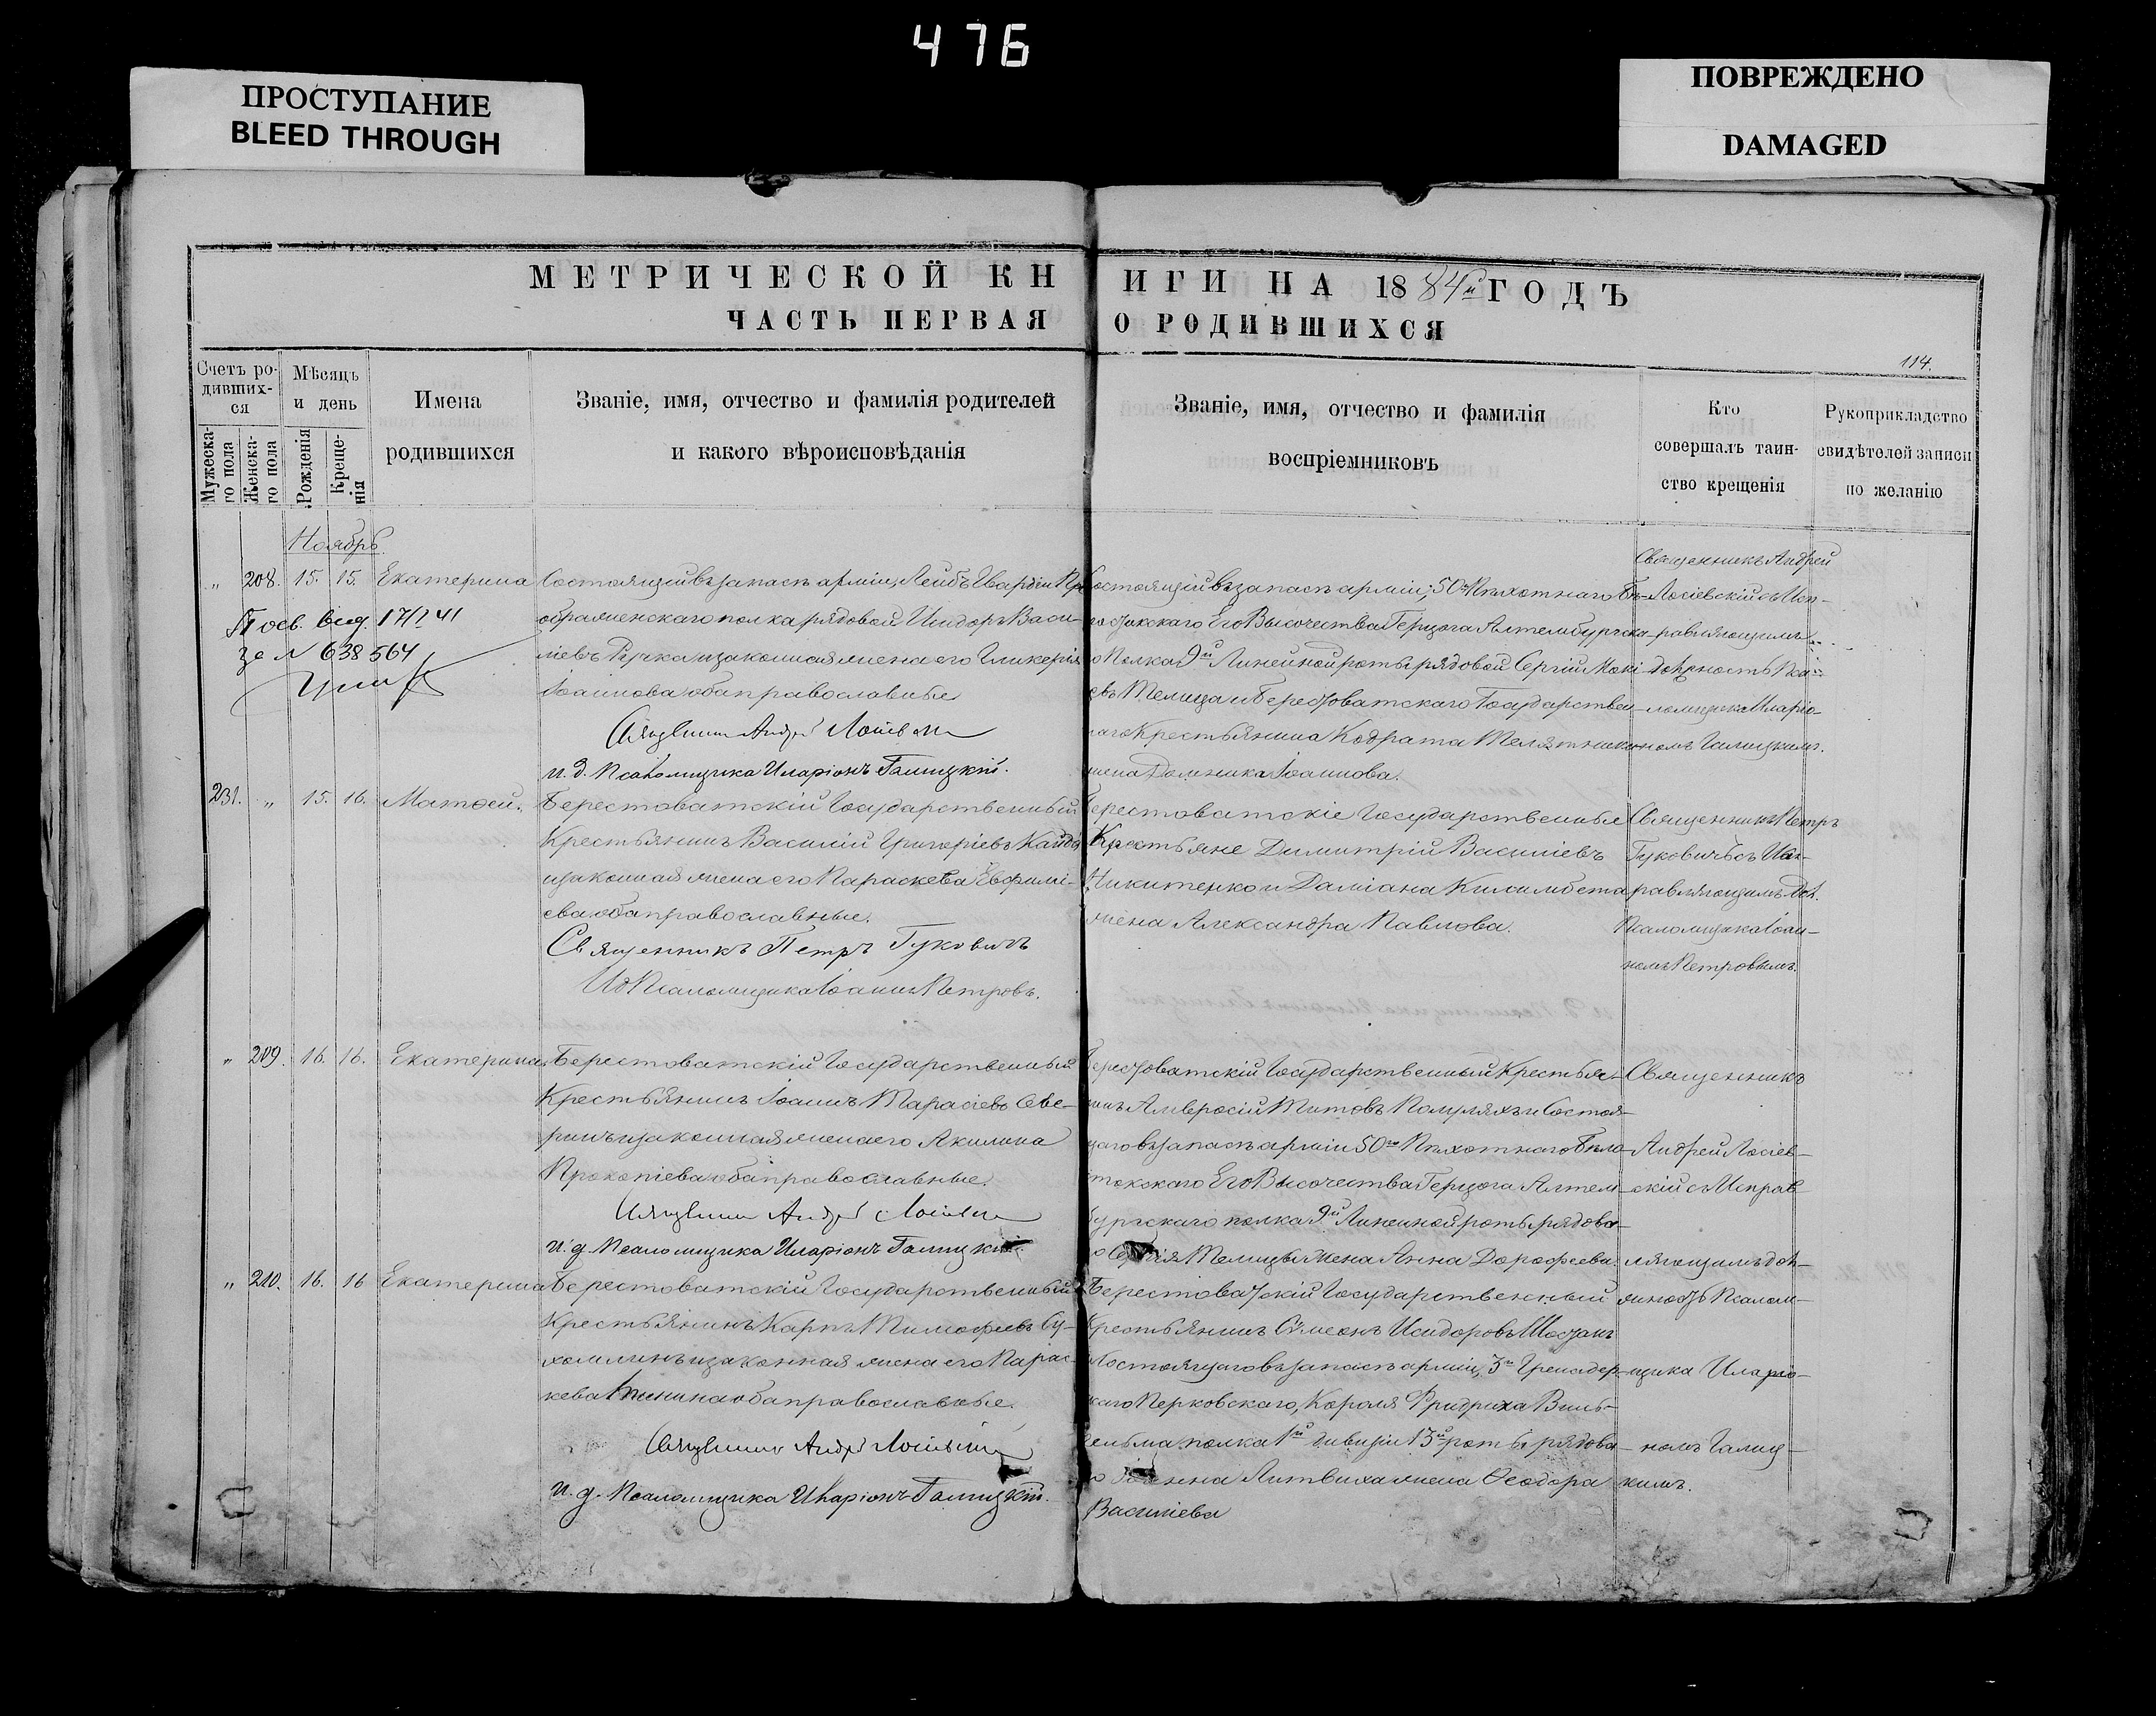 476
ПРОСТУПАНИЕ
BLEED THROUGH
ПОВРЕЖДЕНО
DAMAGED
МЕТРИЧЕСКОЙ КНИГИ НА 1884й ГОДЪ
ЧАСТЬ ПЕРВАЯ О РОДИВШИХСЯ
114.
Счетъ ро-
дивших-
ся
Мужеска-
го пола
Женска-
го пола
Мѣсяцъ
и день
Рожденія
Креще-
нія
Имена
родившихся
Званіе, имя, отчество и фамилія родителей
и какого вѣроисповѣданія
Званіе, имя, отчество и фамилія
воспріемниковъ
Кто
совершалъ таин-
ство крещенія
Рукоприкладство
свидѣтелей записи
по желанію
Ноябрь
„ 208. 15. 15. Екатерина
Состоящій въ запасѣ арміи, Лейбъ Гвардіи Пре
ображенскаго полка рядовой Исидоръ Васи-
ліевъ и законная жена его Гликерія
Іоаннова оба православные
Священникъ Андрей Лосіевскій
и. д. Псаломщика Иларіонъ Галицкій.
состоящій въ запасѣ арміи, 50го Пѣхотнаго Бѣ-
лостокскаго Его Высочества Герцога Альтенбургска-
го Полка 9й Линейной роты рядовой Сергій Моки-
евъ Телица и Берестоватскаго Государствен-
наго Крестьянина Кодрата
жена Домника Іоаннова.
Священникъ Андрей
Лосіевскій съ Исп-
равляющимъ
должность Пса-
ломщика Иларіо-
номъ Галицкимъ.
171241
за N 638564
231. „ 15. 16. Матѳей.
Берестоватскій Государственный
Крестьянинъ Василій Григоріевъ
и законная жена его Параскева Евфимі-
ева оба православные.
Священникъ Петръ Гуковичъ
И д Псаломщика Іоаннъ Петровъ.
Берестоватскіе Государственные
Крестьяне Димитрій Василіевъ
Никитенко и Даміана
жена Александра Павлова.
Священникъ Петръ
Гуковичъ съ Исп-
равляющимъ Дол.
Псаломщика Іоан-
номъ Петровымъ.
„ 209. 16. 16. Екатерина
Берестоватскій Государственный
Крестьянинъ Іоаннъ Тарасіевъ Све-
ринъ и законная жена его Акилина
Прокопіева оба православные.
Священникъ Андрей Лосіевскій
и. д. Псаломщика Иларіонъ Галицкій.
Берестоватскій Государственный Крестья-
нинъ Амвросій Титовъ и Состоя-
щаго въ запасѣ арміи 50го Пѣхотнаго Бѣло-
стокскаго Его Высочества Герцога Альтен-
бургскаго полка 9й Линейной роты рядова-
го Сергія Телицы жена Анна Дорофеева.
Священникъ
Андрей Лосіев-
скій съ Исправ-
ляющимъ дол-
„ 210. 16. 16 Екатерина
Берестоватскій Государственный
Крестьянинъ Карпъ Тимофеевъ Су-
хомлинъ и законная жена его Парас-
кева оба православные.
Священникъ Андрей Лосіевскій
и. д. Псаломщика Иларіонъ Галицкій.
Берестоватскій Государственный
Крестьянинъ Сѵмеонъ Исидоровъ
и Состоящаго въ запасѣ арміи, 3го Гренадер-
скаго Перновскаго, Короля Фридриха Виль-
гельма полка 1й дивизіи 13й роты рядова-
го Іоанна Литвиха жена Ѳеодора
Василіева
жность Псалом-
щика Иларіо-
номъ Галиц-
кимъ.